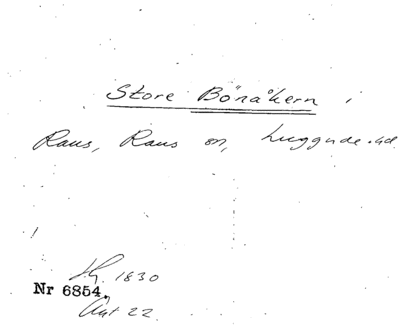 Store Bönåkern
Raus, Raus sn, Luggude hd
Hg. 1830
Nr 6854.
Ant 22